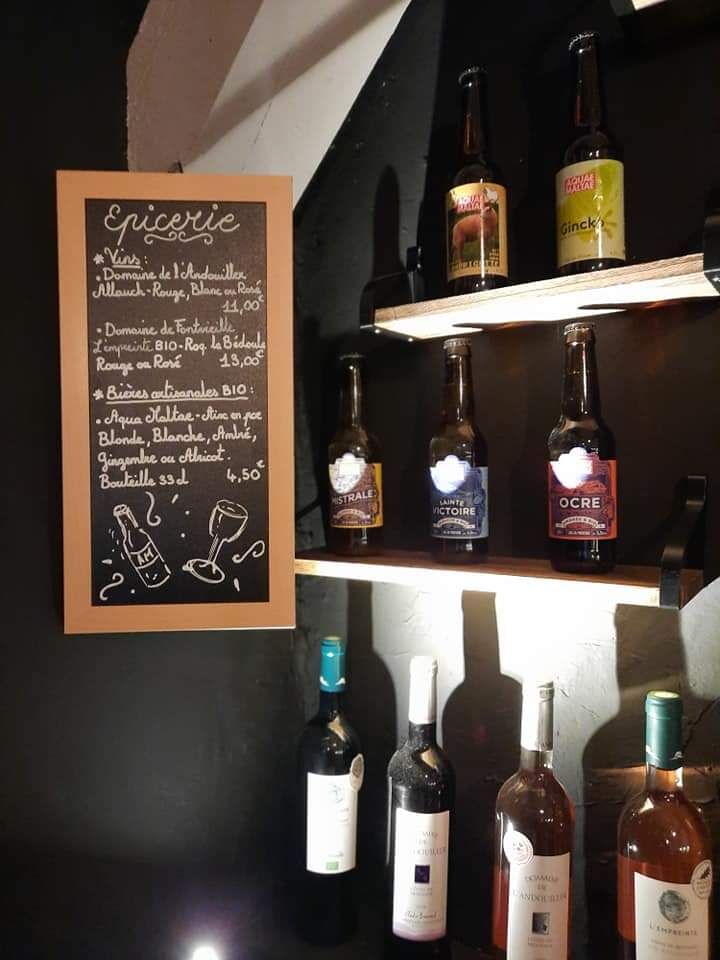 Epicerie
* Vins :
. Domaine de l'Andouiller
Allauch - Rouge, Blanc ou Rosé
11,00€
. Domaine de Fontvieille
L'empreinte BIO - Roq. la Bédoule
Rouge ou Rosé 13,00€
* Bières artisanales BIO :
. Aqua Maltae - Aix en pce
Blonde, Blanche, Ambré,
Gingembre ou Abricot.
Bouteille 33 cl 4,50€
AM
AQUAE
MALTAE
AQUAE
MALTAE
Gincko
MISTRALE
SAINTE
VICTOIRE
OCRE
DOMAINE
DE
L'ANDOUILLER
DOMAINE
DE
L'ANDOUILLER
L'EMPREINTE